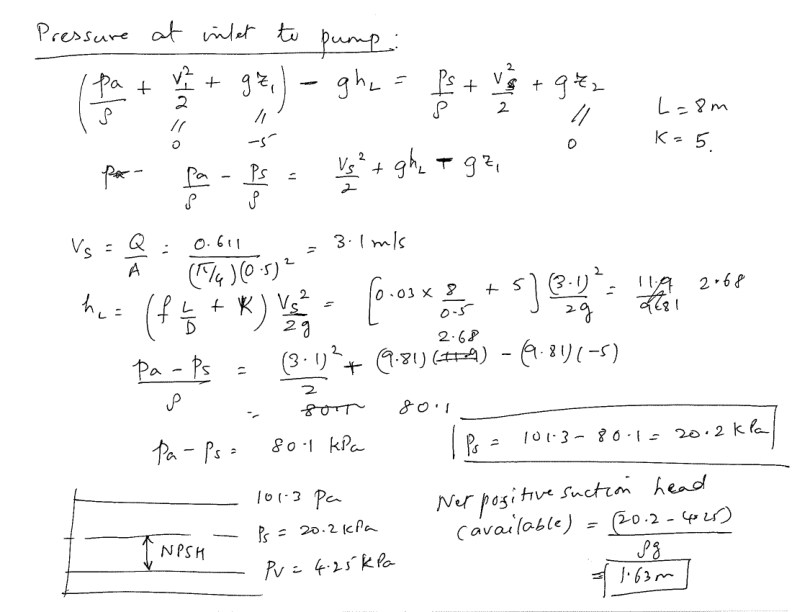 Pressure at inlet to pump:
(pa/ρ + V₁²/2 + gz₁) - ghL = ps/ρ + Vs²/2 + gz₂
// // //
0 -5 0
L = 8m
K = 5.
pa/ρ - ps/ρ = Vs²/2 + ghL - gz₁
Vs = Q/A = 0.611/((π/4)(0.5)²) = 3.1 m/s
hL = (f L/D + K) Vs²/2g = [0.03 × 8/0.5 + 5] (3.1)²/2g = 2.68
(pa - ps)/ρ = (3.1)²/2 + (9.81)(2.68) - (9.81)(-5)
= 80.1
pa - ps = 80.1 kPa
Ps = 101.3 - 80.1 = 20.2 kPa
101.3 Pa
Ps = 20.2 kPa
NPSH
Pv = 4.25 kPa
Net positive suction head
(available) = (20.2 - 4.25)/ρg
= 1.63m